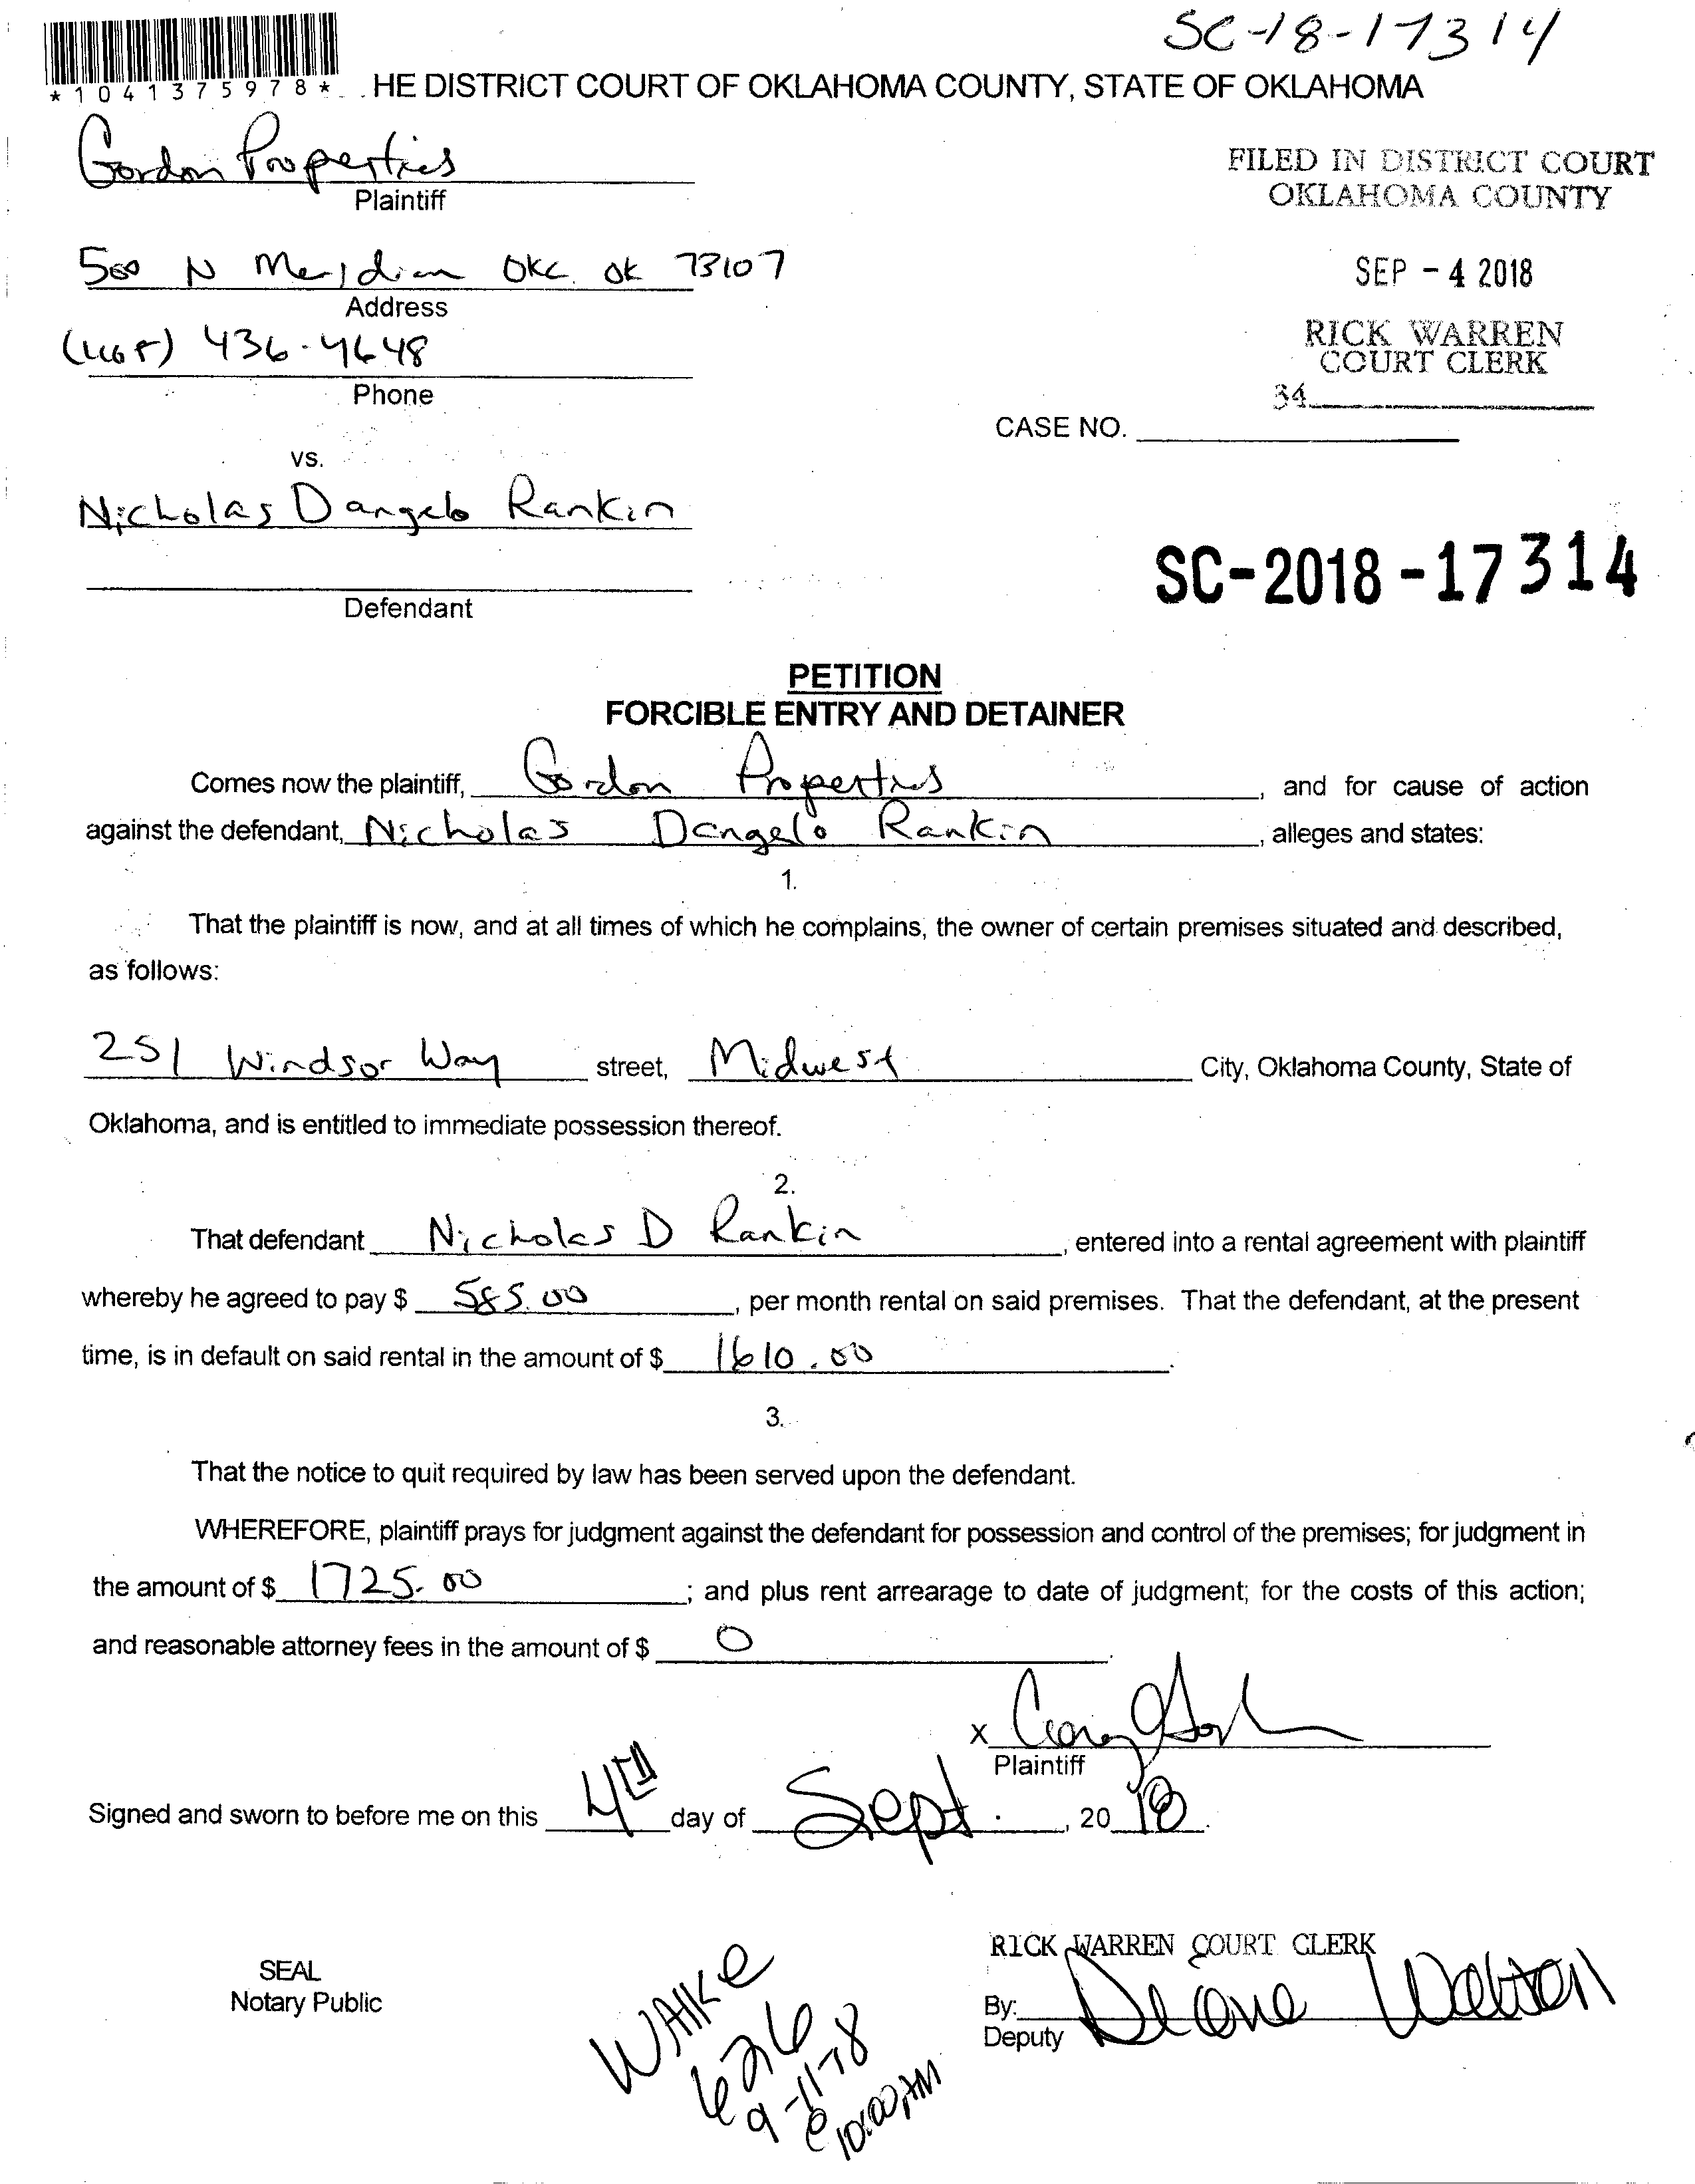 SC-18-17314
*1041375978* HE DISTRICT COURT OF OKLAHOMA COUNTY, STATE OF OKLAHOMA
Gordon Properties
Plaintiff
FILED IN DISTRICT COURT
OKLAHOMA COUNTY
500 N Meridian OKC OK 73107
Address
SEP - 4 2018
(405) 436-4648
Phone
RICK WARREN
COURT CLERK
34
CASE NO.
vs.
Nicholas Dangelo Rankin
Defendant
SC-2018-17314
PETITION
FORCIBLE ENTRY AND DETAINER
Comes now the plaintiff, Gordon Properties, and for cause of action
against the defendant, Nicholas Dangelo Rankin, alleges and states:
1.
That the plaintiff is now, and at all times of which he complains, the owner of certain premises situated and described,
as follows:
251 Windsor Way street, Midwest City, Oklahoma County, State of
Oklahoma, and is entitled to immediate possession thereof.
2.
That defendant Nicholas D Rankin, entered into a rental agreement with plaintiff
whereby he agreed to pay $ 585.00, per month rental on said premises. That the defendant, at the present
time, is in default on said rental in the amount of $ 1610.00.
3.
That the notice to quit required by law has been served upon the defendant.
WHEREFORE, plaintiff prays for judgment against the defendant for possession and control of the premises; for judgment in
the amount of $ 1725.00; and plus rent arrearage to date of judgment; for the costs of this action;
and reasonable attorney fees in the amount of $ 0.
X
Plaintiff
Signed and sworn to before me on this 4th day of Sept., 2018.
RICK WARREN COURT CLERK
SEAL
Notary Public
By: Diane Walton
Deputy
WAlKe
626
9-11-18
@ 10:00 AM